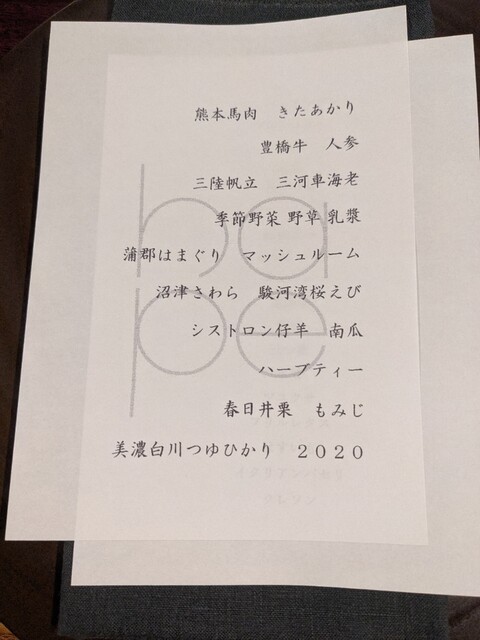 熊本馬肉　きたあかり
豊橋牛　人参
三陸帆立　三河車海老
季節野菜 野草 乳漿
蒲郡はまぐり　マッシュルーム
沼津さわら　駿河湾桜えび
シストロン仔羊　南瓜
ハーブティー
春日井栗　もみじ
美濃白川つゆひかり　２０２０
ha
pe